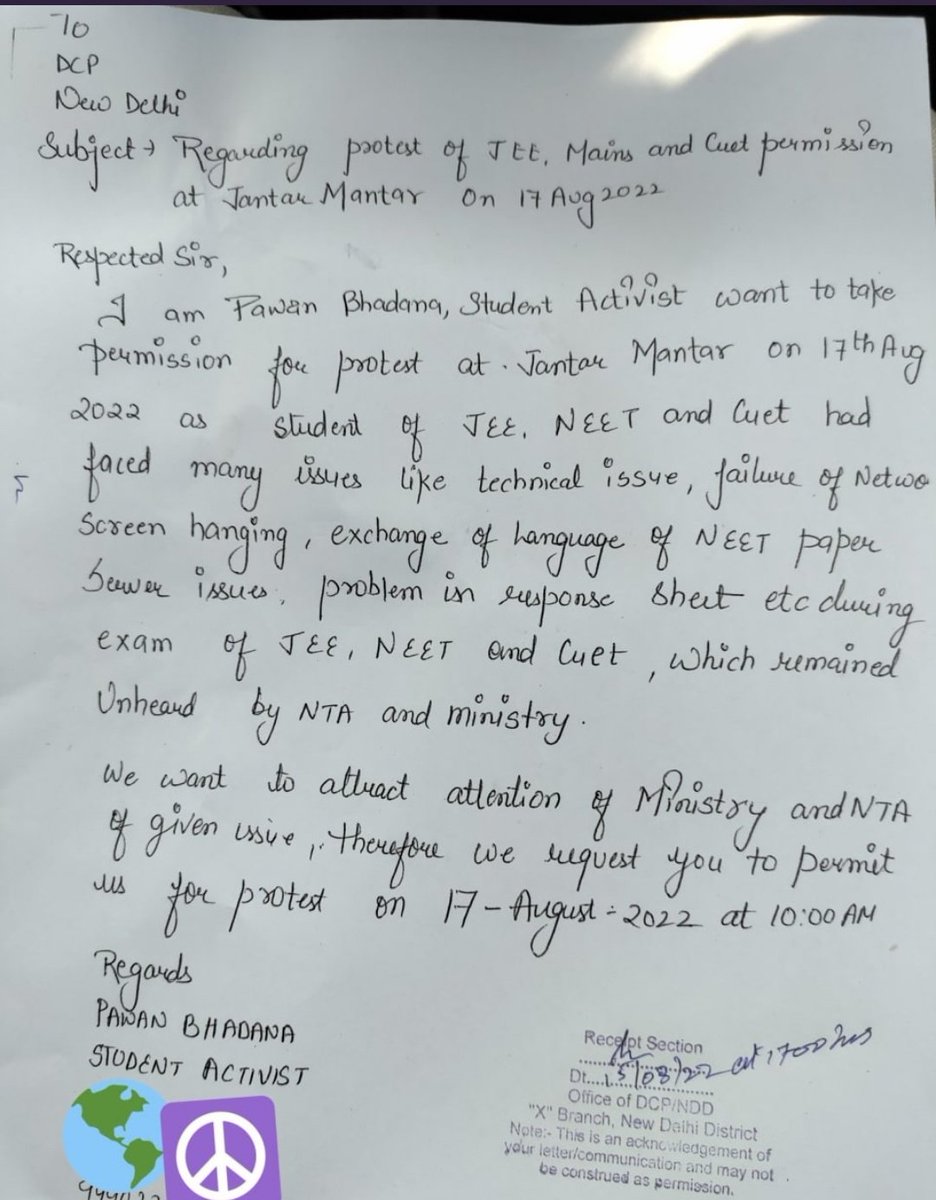 To
DCP
New Delhi
Subject → Regarding protest of JEE, Mains and Cuet permission
at Jantar Mantar on 17 Aug 2022
Respected Sir,
I am Pawan Bhadana, Student Activist want to take
permission for protest at Jantar Mantar on 17th Aug
2022 as student of JEE, NEET and Cuet had
faced many issues like technical issue, failure of Netwo
Screen hanging, exchange of language of NEET paper
Server issues, problem in response sheet etc during
exam of JEE, NEET and Cuet, which remained
Unheard by NTA and ministry.
We want to attract attention of Ministry and NTA
of given issue, therefore we request you to permit
us for protest on 17-August-2022 at 10:00 AM
Regards
PAWAN BHADANA
STUDENT ACTIVIST
Receipt Section
Dt....15/08/22 at 1700 hrs
Office of DCP/NDD
"X" Branch, New Delhi District
Note:- This is an acknowledgement of
your letter/communication and may not
be construed as permission.